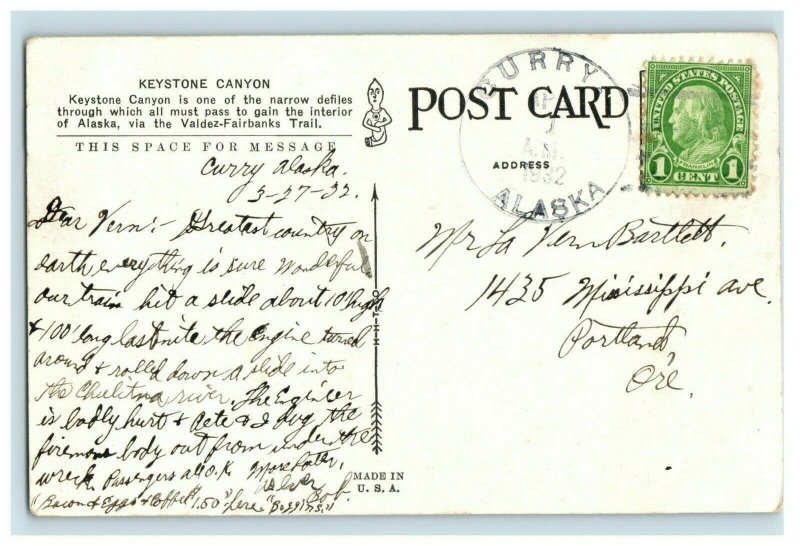 KEYSTONE CANYON
Keystone Canyon is one of the narrow defiles
through which all must pass to gain the interior
of Alaska, via the Valdez-Fairbanks Trail.
THIS SPACE FOR MESSAGE
Curry Alaska.
3-27-32.
Dear Vern:- Greatest country on
earth everything is sure wonderful
our train hit a slide about 10' high
& 100' long last nite the Engine turned
around & rolled down a slide into
the Chulitna river. The Engineer
is badly hurt & Pete & I dug the
firemans body out from under the
wreck. Passengers all O.K. More later,
as ever
Bob.
"Bacon & Eggs & Coffee" 1.50 "here"
POST CARD
ADDRESS
CURRY
A.M.
1932
ALASKA
UNITED STATES POSTAGE
FRANKLIN
1 CENT 1
Mr La Vern Bartlett.
1435 Mississippi ave.
Portland
Ore.
MADE IN
U.S.A.